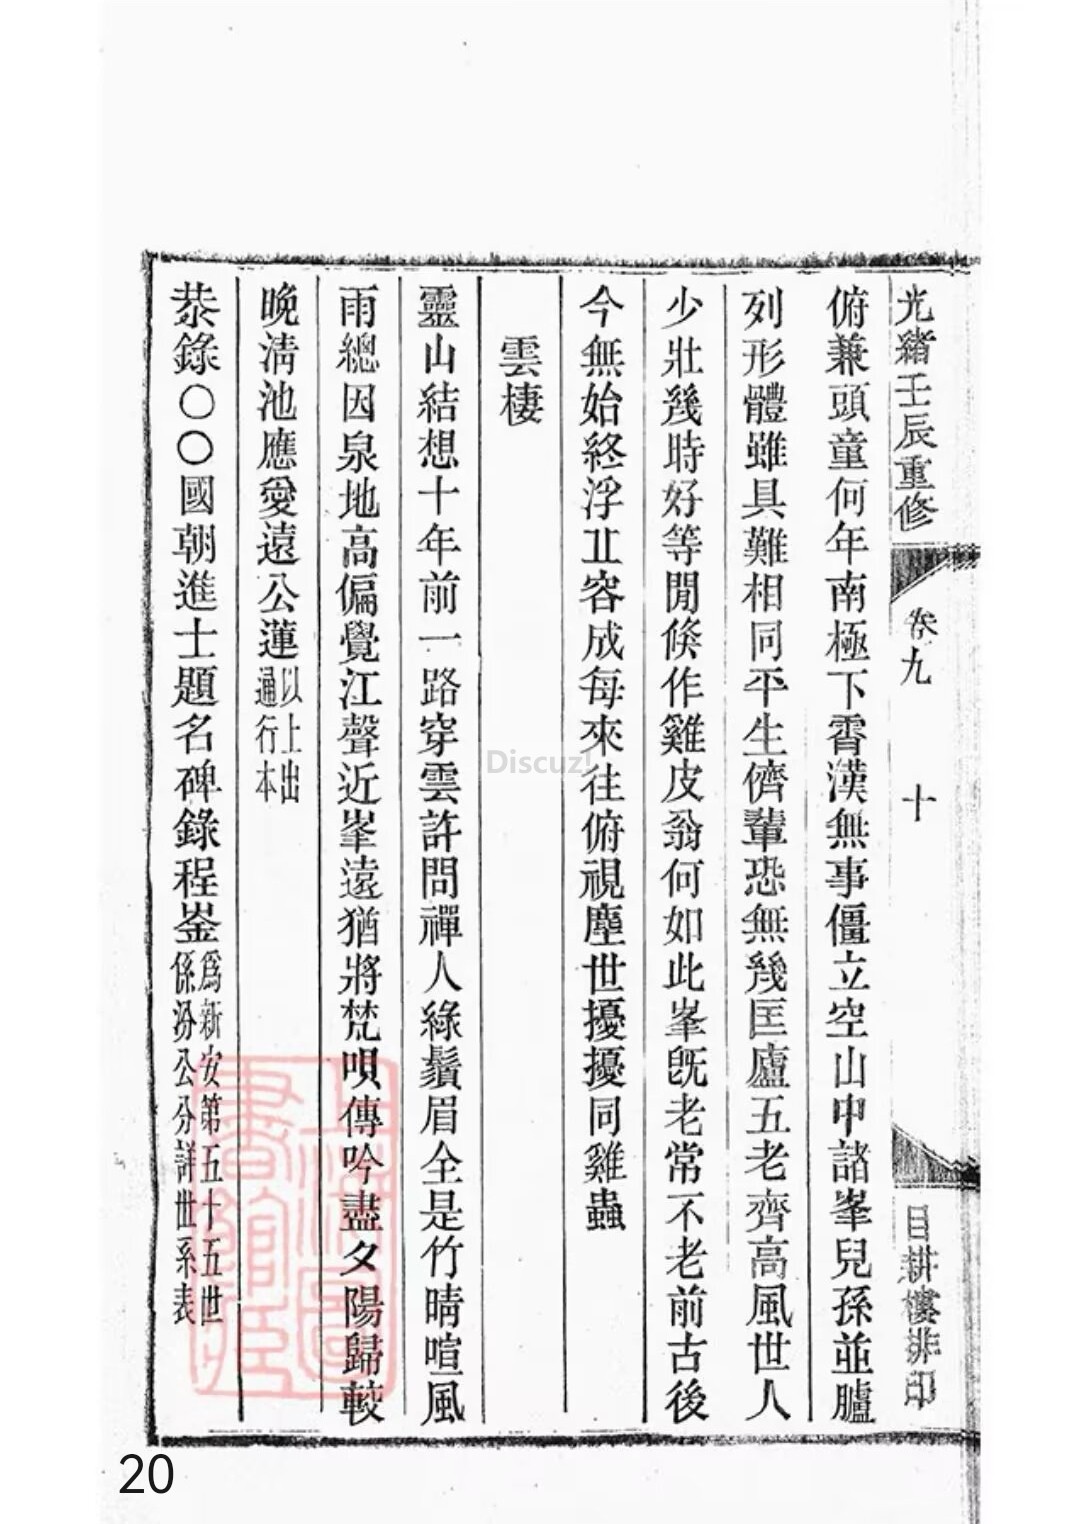 光緒壬辰重修
卷九
十
目耕樓排印
俯兼頭童何年南極下霄漢無事僵立空山中諸峯兒孫並臚
列形體雖具難相同平生儕輩恐無幾匡廬五老齊高風世人
少壯幾時好等閒倏作雞皮翁何如此峯旣老常不老前古後
今無始終浮丘容成每來往俯視塵世擾擾同雞蟲
雲棲
靈山結想十年前一路穿雲許問禪人綠鬚眉全是竹晴喧風
雨總因泉地高偏覺江聲近峯遠猶將梵唄傳吟盡夕陽歸較
晚淸池應愛遠公蓮以上出通行本
恭錄〇〇國朝進士題名碑錄程崟爲新安第五十五世係汾公分詳世系表
上海圖書館藏
Discuz!
20